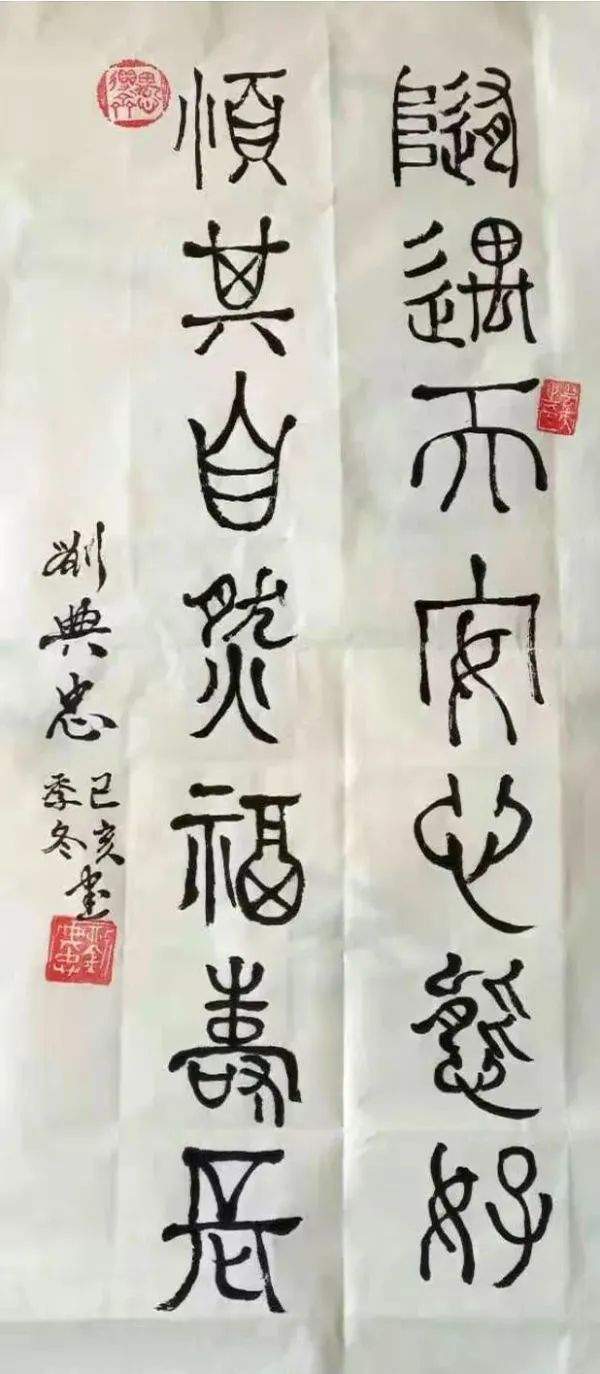 隨遇而安心態好
順其自然福壽長
劉典忠
己亥
季冬書
劉典忠